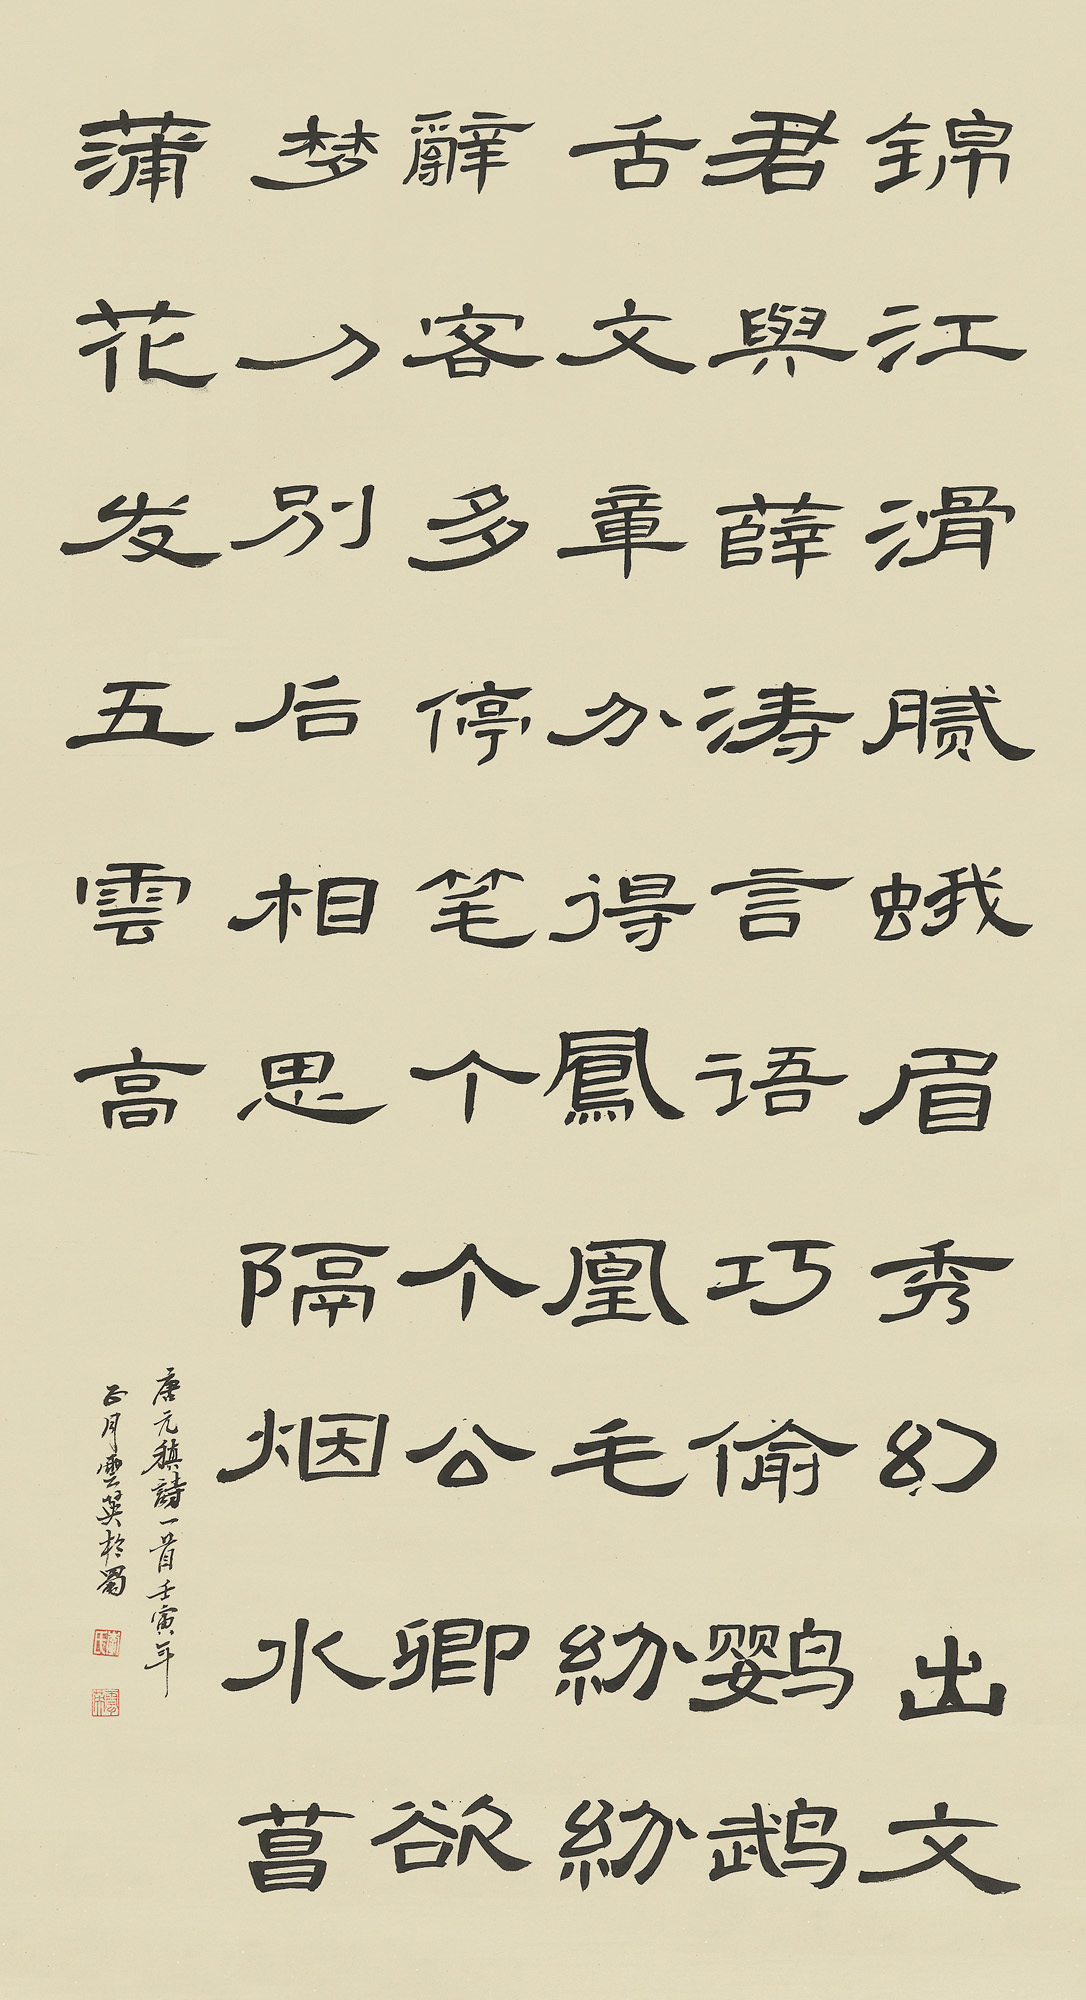 锦江滑腻蛾眉秀幻出文
君與薛涛言语巧偷鹦鹉
舌文章分得鳳凰毛紛紛
辭客多停笔个个公卿欲
梦刀别后相思隔烟水菖
蒲花发五雲高
唐元稹詩一首壬寅年
正月雲英於蜀